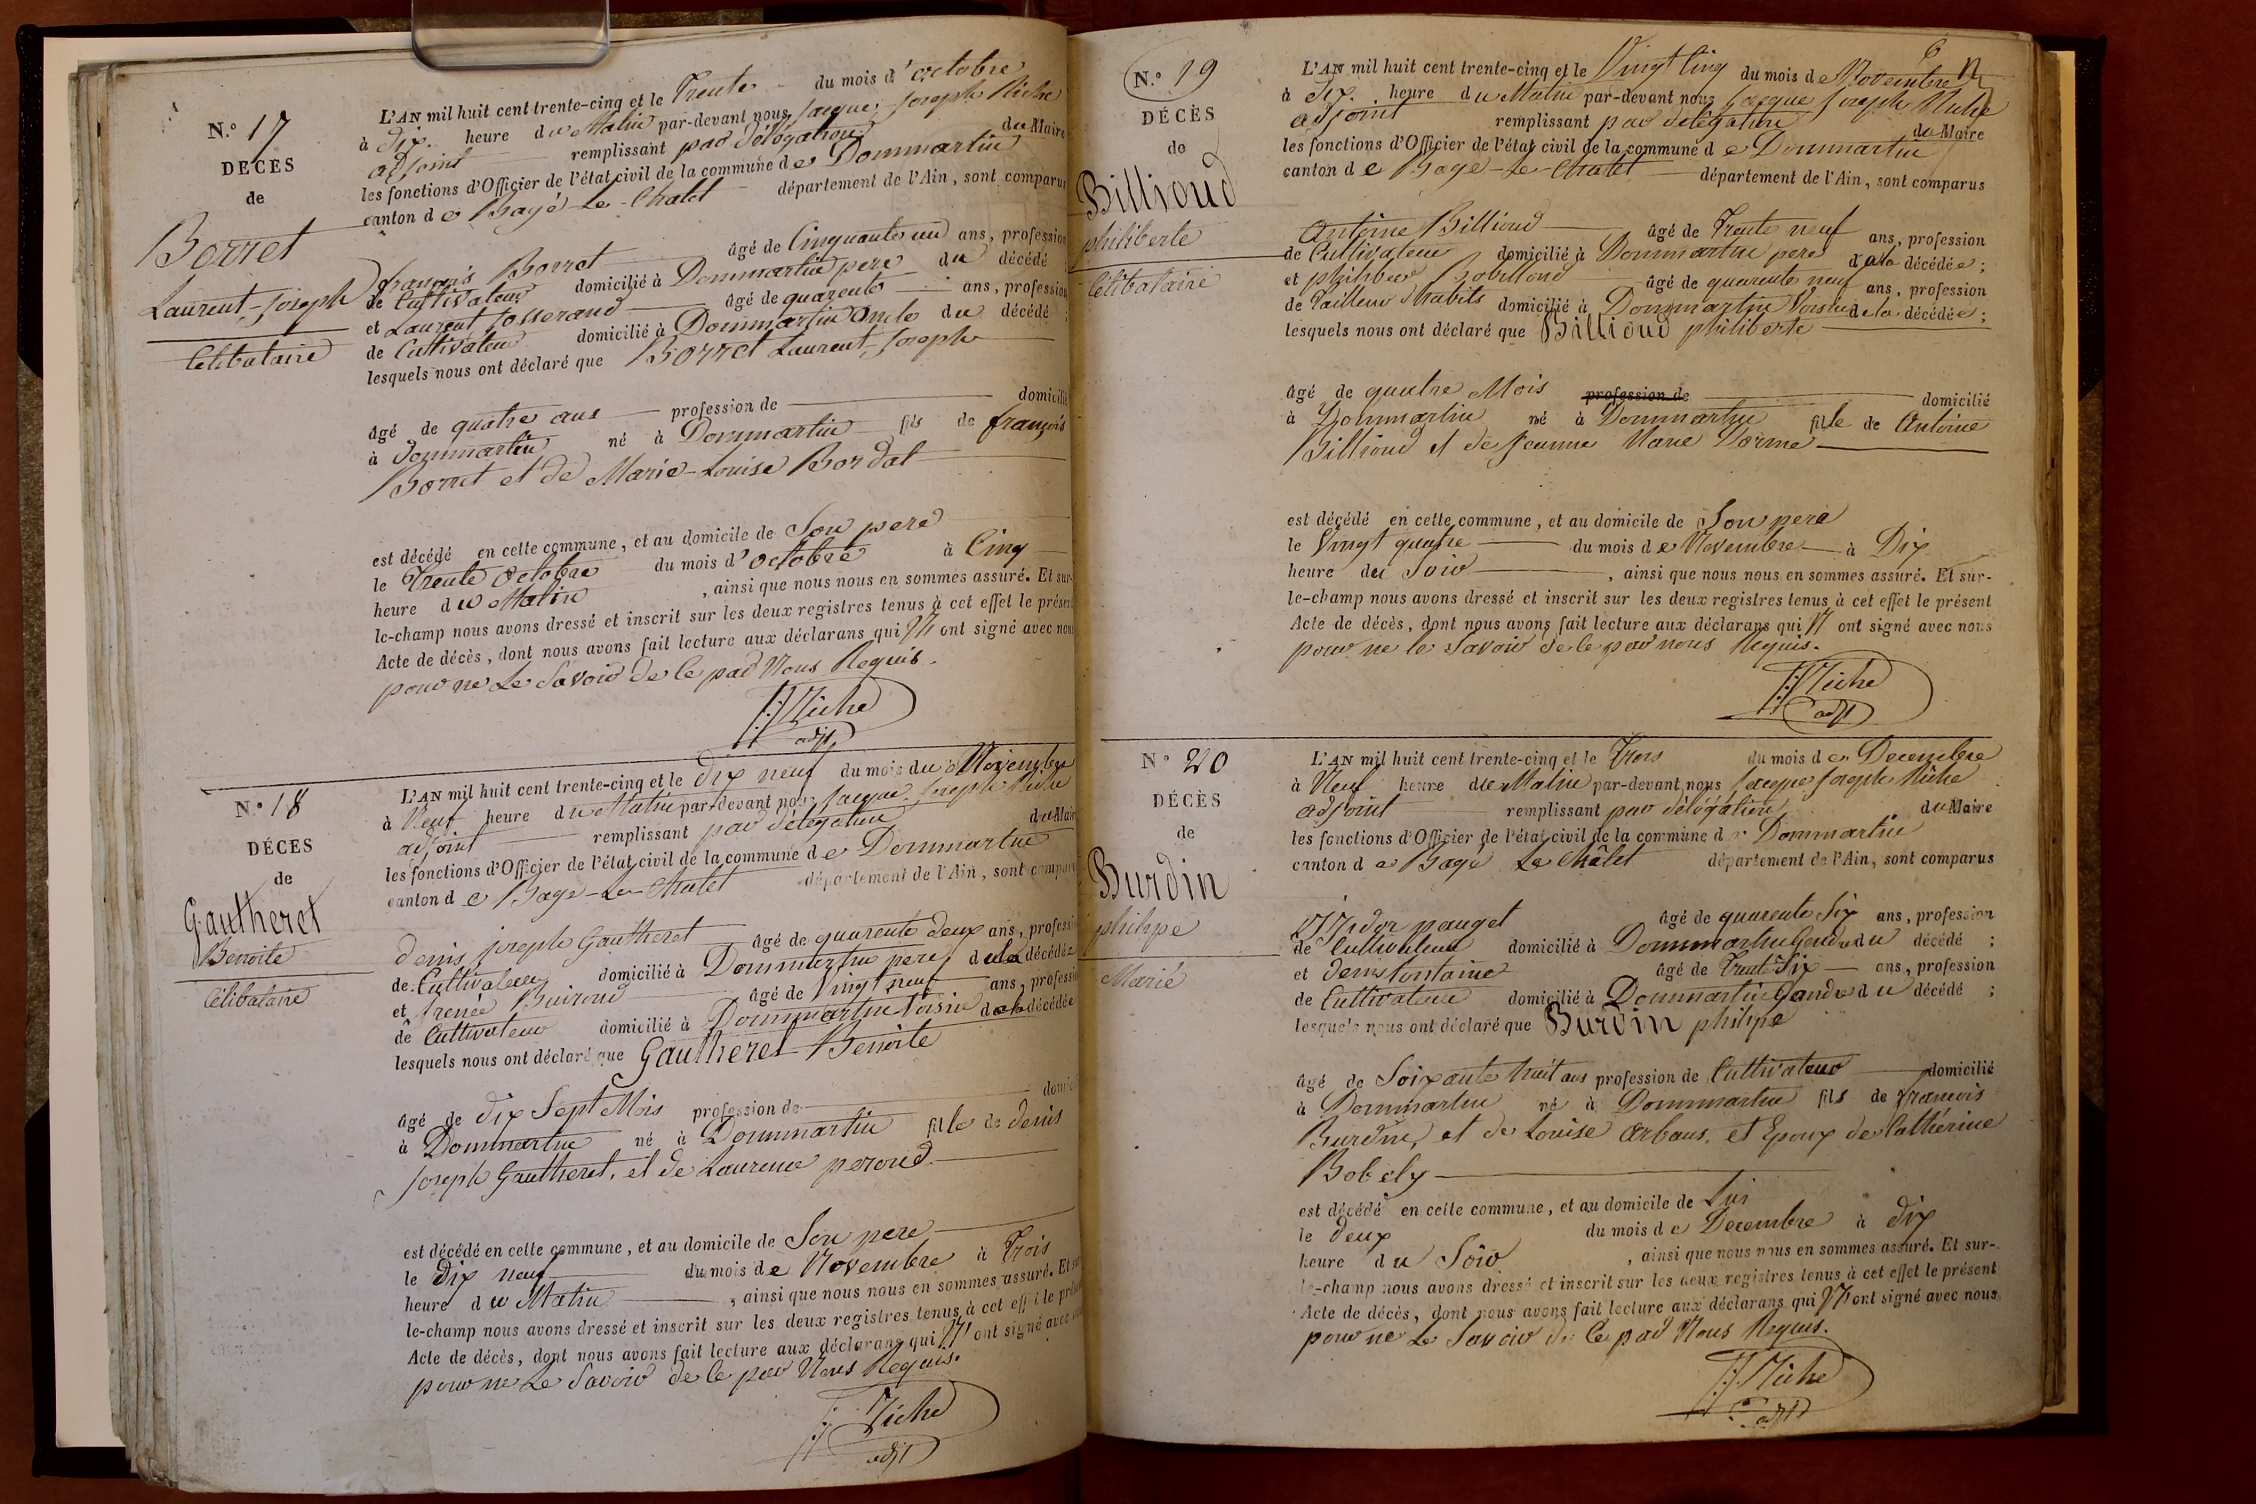 N.o 17
DÉCÈS
de
Borret
Laurent-Joseph
Célibataire
L'AN mil huit cent trente-cinq et le Trente du mois d'octobre
à dix heure du Matin par-devant nous Jacques Joseph Riche
adjoint remplissant par délégation du Maire
les fonctions d'Officier de l'état civil de la commune de Dommartin
canton de Bagé-Le-Chatel département de l'Ain, sont comparus
françois Borret âgé de Cinquante un ans, profession
de Cultivateur domicilié à Dommartin pere du décédé ;
et Laurent Josserand âgé de quarente ans, profession
de Cultivateur domicilié à Dommartin oncle du décédé ;
lesquels nous ont déclaré que Borret Laurent, Joseph
âgé de quatre ans profession de domicilié
à Dommartin né à Dommartin fils de françois
Borret et de Marie-Louise Bordat
est décédé en cette commune, et au domicile de Son pere
le Trente Octobre du mois d'octobre à Cinq
heure du Matin , ainsi que nous nous en sommes assuré. Et sur-
le-champ nous avons dressé et inscrit sur les deux registres tenus à cet effet le présent
Acte de décès, dont nous avons fait lecture aux déclarans qui n'ont signé avec nous
pour ne Le Savoir de ce par Nous Requis.
JJ Riche
adjt
N.o 18
DÉCES
de
Gautheret
Benoite
Célibataire
L'AN mil huit cent trente-cinq et le dix neuf du mois du Novembre
à Neuf heure du Matin par-devant nous Jacque Joseph Riche
adjoint remplissant par délégation du Maire
les fonctions d'Officier de l'état civil de la commune de Dommartin
canton de Bagé-Le-Chatel département de l'Ain, sont comparus
denis joseph Gautheret âgé de quarente deux ans, profession
de Cultivateur domicilié à Dommartin pere de la décédée
et Irenée Buiroud âgé de Vingt neuf ans, profession
de Cultivateur domicilié à Dommartin Voisin de la décédée
lesquels nous ont déclaré que Gautheret Benoite
âgé de dix Sept Mois profession de domicilié
à Dommartin né à Dommartin fille de denis
Joseph Gautheret, et de Laurence peroud
est décédé en cette commune, et au domicile de Son pere
le Dix neuf du mois de Novembre à Trois
heure du Matin , ainsi que nous nous en sommes assuré. Et sur-
le-champ nous avons dressé et inscrit sur les deux registres tenus à cet effet le présent
Acte de décès, dont nous avons fait lecture aux déclarans qui n'ont signé avec nous
pour ne Le Savoir de ce par Nous Requis.
JJ Riche
adjt
6
N.o 19
DÉCÈS
de
Billioud
philiberte
Célibataire
L'AN mil huit cent trente-cinq et le Vingt Cinq du mois de Novembre
à dix heure du Matin par-devant nous Jacque Joseph Riche
adjoint remplissant par délégation du Maire
les fonctions d'Officier de l'état civil de la commune de Dommartin
canton de Bagé-Le-Chatel département de l'Ain, sont comparus
Antoine Billioud âgé de Trente neuf ans, profession
de Cultivateur domicilié à Dommartin pere de la décédée ;
et philiber Robillond âgé de quarente neuf ans, profession
de Tailleur d'habits domicilié à Dommartin Voisin de la décédée ;
lesquels nous ont déclaré que Billioud philiberte
âgé de quatre Mois profession de domicilié
à Dommartin né à Dommartin fille de Antoine
Billioud et de Jeanne Marie Dorme
est décédé en cette commune, et au domicile de Son pere
le Vingt quatre du mois de Novembre à Dix
heure du Soir , ainsi que nous nous en sommes assuré. Et sur-
le-champ nous avons dressé et inscrit sur les deux registres tenus à cet effet le présent
Acte de décès, dont nous avons fait lecture aux déclarans qui n'ont signé avec nous
pour ne le Savoir de ce par nous Requis.
JJ Riche
adjt
N.o 20
DÉCÈS
de
Burdin
philipe
Marié
L'AN mil huit cent trente-cinq et le Trois du mois de Decembre
à Neuf heure du Matin par-devant nous Jacque Joseph Riche
adjoint remplissant par délégation du Maire
les fonctions d'Officier de l'état civil de la commune de Dommartin
canton de Bagé Le Châtel département de l'Ain, sont comparus
pauget âgé de quarente Six ans, profession
de Cultivateur domicilié à Dommartin Gendre du décédé ;
et denis fontaine âgé de Trente Six ans, profession
de Cultivateur domicilié à Dommartin Gendre du décédé ;
lesquels nous ont déclaré que Burdin philipe
âgé de Soixante huit ans profession de Cultivateur domicilié
à Dommartin né à Dommartin fils de francois
Burdin, et de Louise Arbans, et Epoux de Cathérine
Bobely
est décédé en cette commune, et au domicile de Lui
le deux du mois de Decembre à dix
heure du Soir , ainsi que nous nous en sommes assuré. Et sur-
le-champ nous avons dressé et inscrit sur les deux registres tenus à cet effet le présent
Acte de décès, dont nous avons fait lecture aux déclarans qui n'ont signé avec nous
pour ne Le Savoir de Ce par Nous Requis.
JJ Riche
adjt